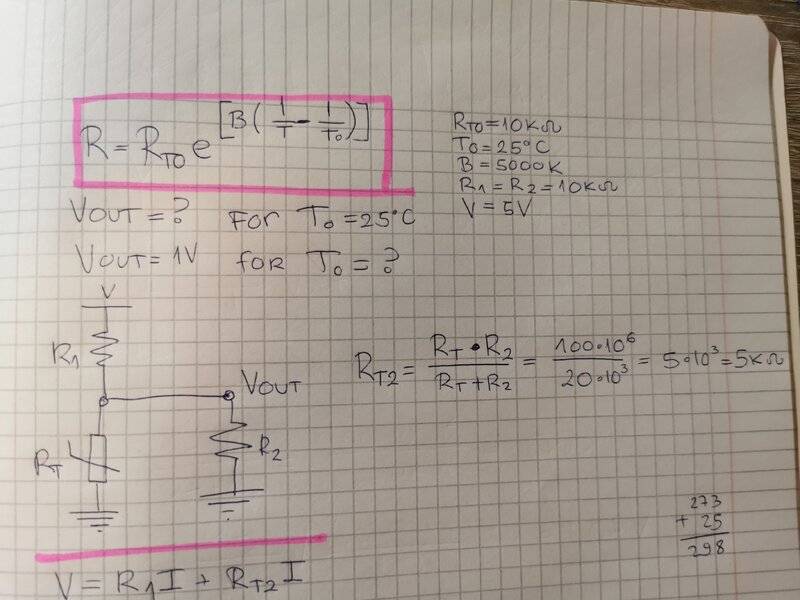 R = R_T0 e^[B(1/T - 1/T0)]
RT0 = 10KΩ
T0 = 25°C
B = 5000K
R1 = R2 = 10KΩ
V = 5V
VOUT = ? FOr T0 = 25°C
VOUT = 1V for T0 = ?
V
R1
VOUT
RT
R2
RT2 = RT • R2 / RT + R2 = 100•10^6 / 20•10^3 = 5•10^3 = 5KΩ
273
+ 25
298
V = R1 I + RT2 I